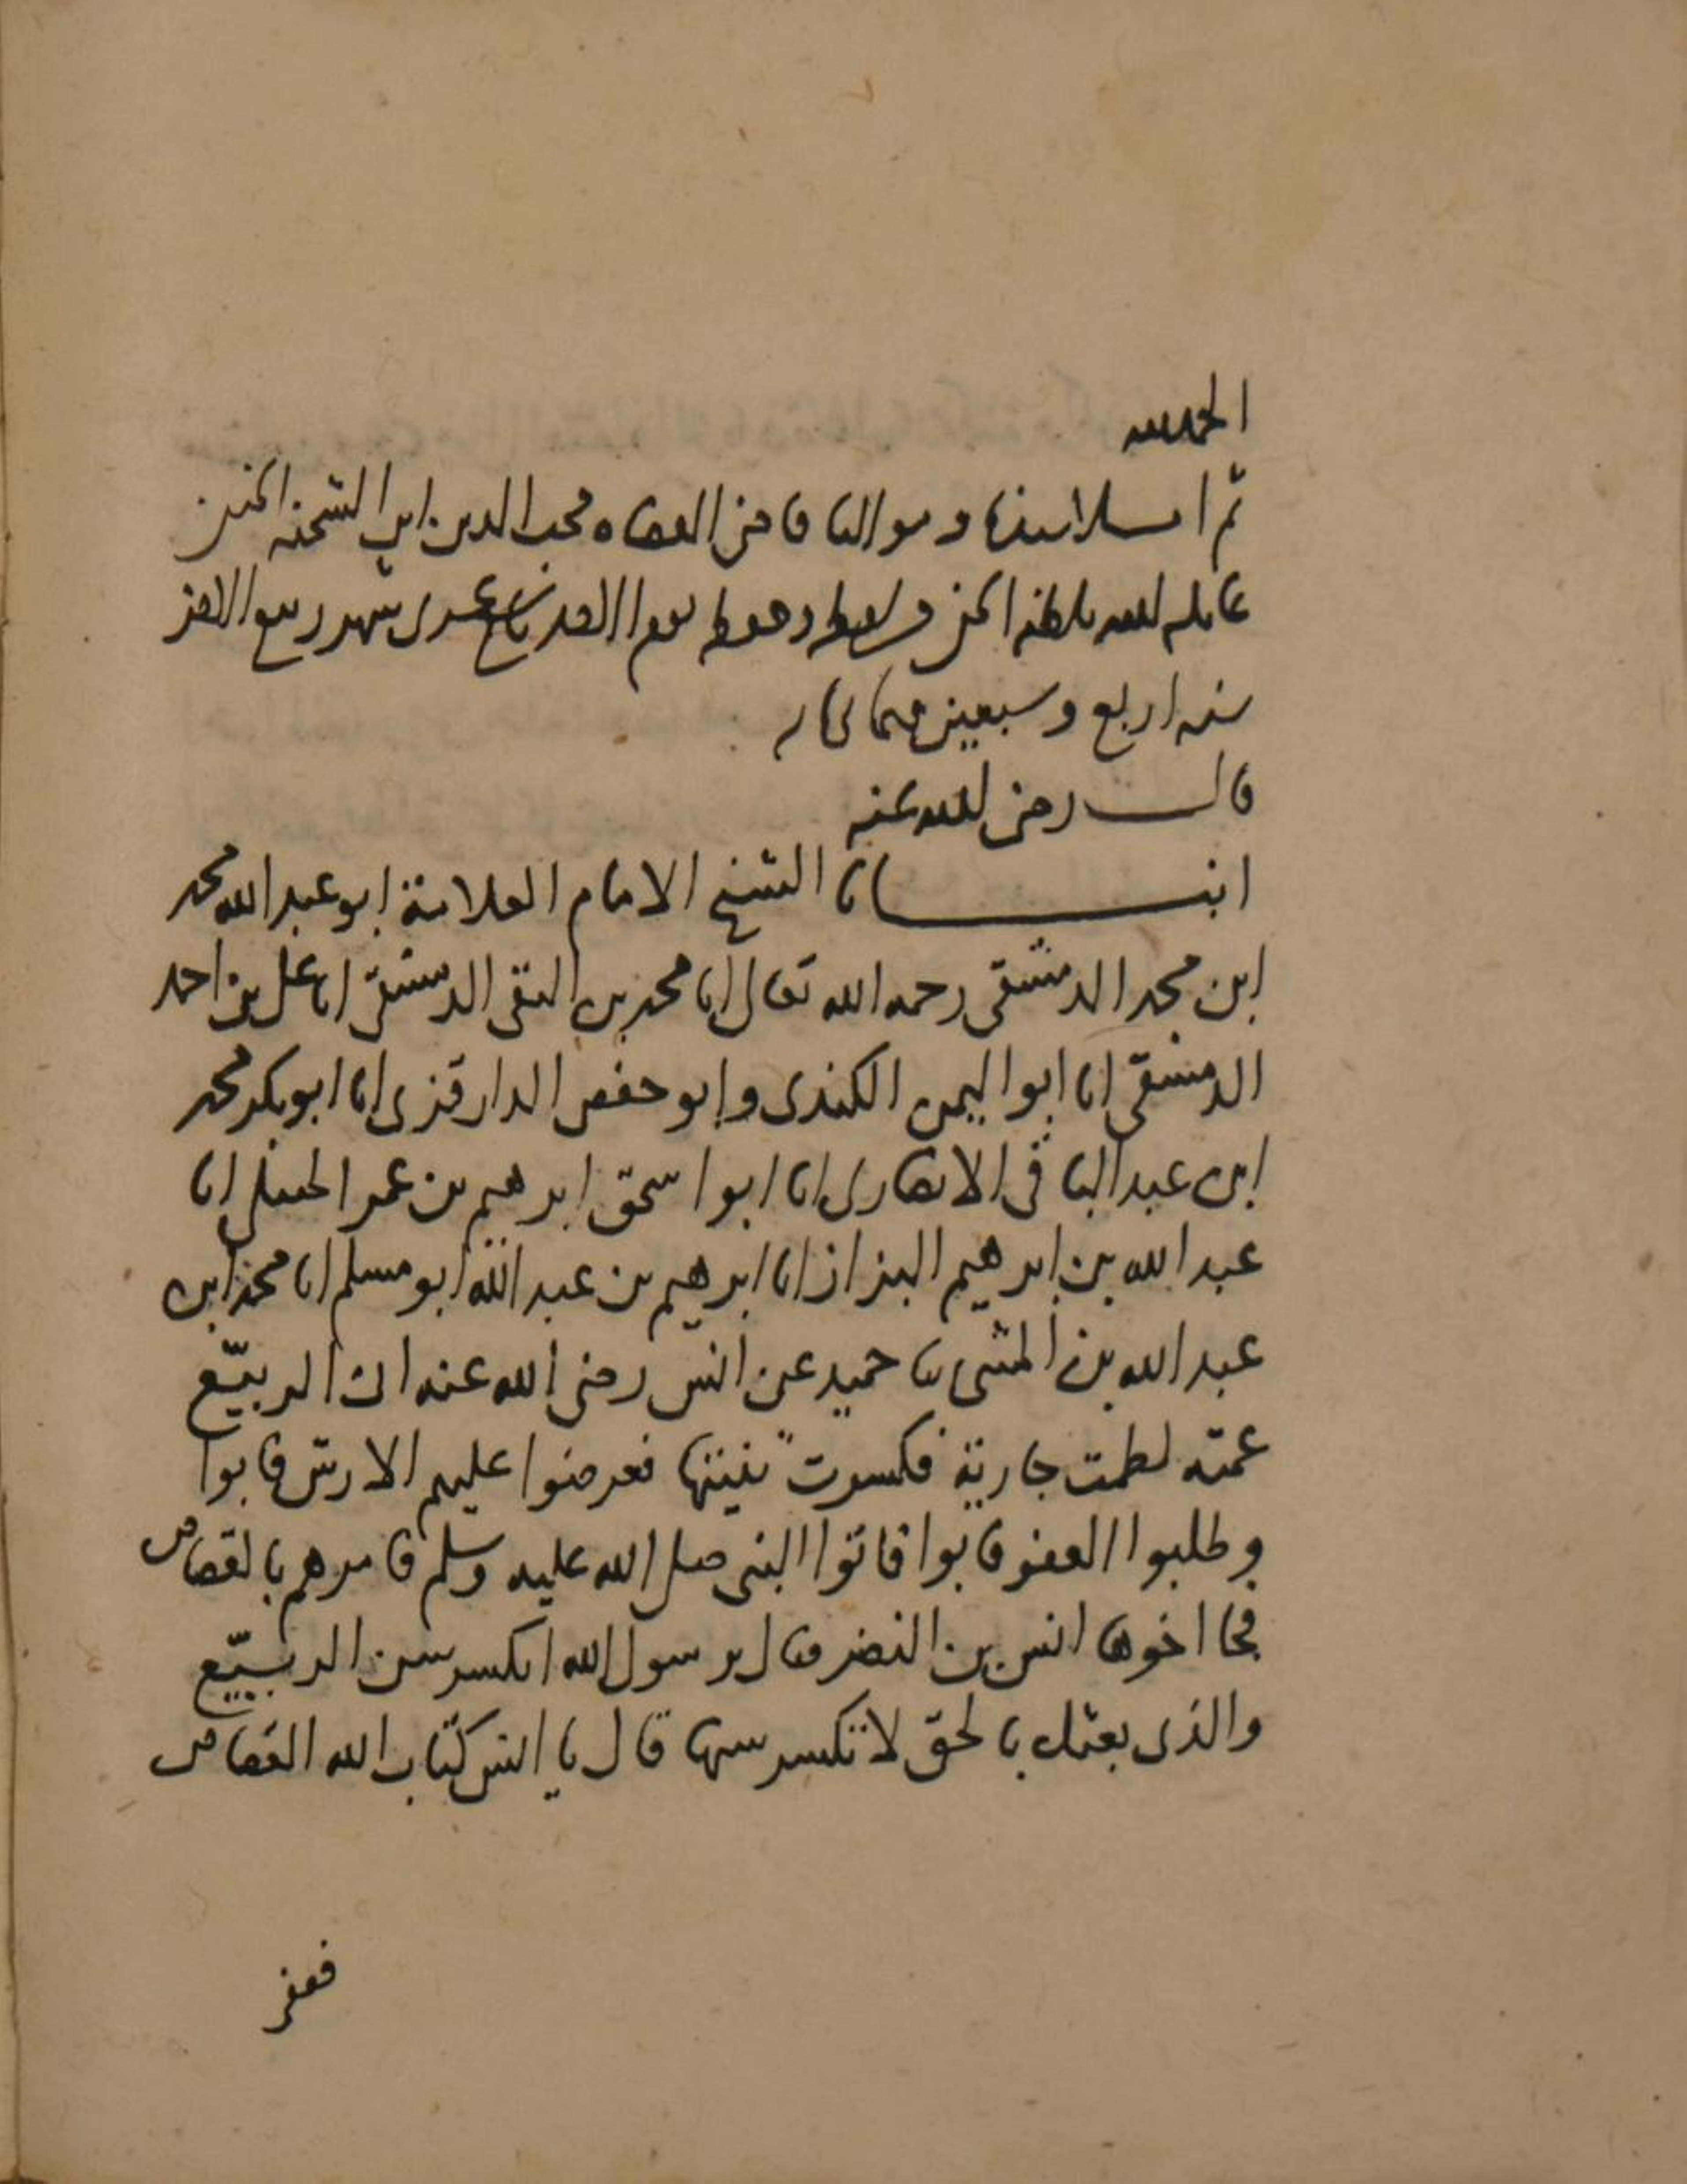 الحمد لله
ثم املا سيدنا ومولانا قاضى القضاه محب الدين ابن الشحنه الحنفى
عامله الله بلطفه الخفى يوم الاحد تاسع عشرى شهر ربيع الاخر
سنه اربع وسبعين وثمانمائه
قال رضى الله عنه
انبانا الشيخ الامام العلامة ابو عبد الله محمد
ابن محمد الدمشقى رحمه الله تعالى انا محمد بن التقى الدمشقى انا على بن احمد
الدمشقى انا ابو اليمن الكندى وابو حفص الدارقزى انا ابو بكر محمد
ابن عبد الباقى الانصارى انا ابو اسحق ابرهيم بن عمر الحنبلى انا
عبد الله بن ابرهيم البزاز انا ابرهيم بن عبد الله ابو مسلم انا محمد ابن
عبد الله بن المثنى ثنا حميد عن انس رضى الله عنه ان الربيّع
عمته لطمت جارية فكسرت ثنيتها فعرضوا عليهم الارش فابوا
وطلبوا العفو فابوا فاتوا النبى صلى الله عليه وسلم فامرهم بالقصاص
فجا اخوها انس بن النضر فقال يرسول الله اتكسر سن الربيّع
والذى بعثك بالحق لا تكسر سنها قال يا انس كتاب الله القصاص
فعفى